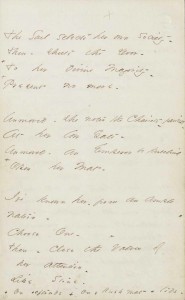 The Soul selects her own Society -
Then - shuts the Door -
To her divine Majority -
Present no more -
Unmoved - she notes the Chariots - pausing
At her low Gate -
Unmoved - an Emperor be kneeling
Upon her Mat -
I've known her - from an ample
nation -
Choose One -
Then - close the Valves of
her attention -
Like Stone -